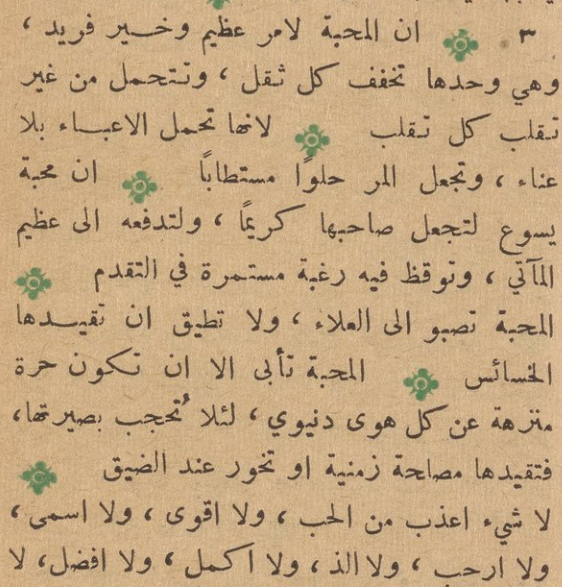 ٣ ان المحبة لامر عظيم وخير فريد ،
وهي وحدها تخفف كل ثقل ، وتتحمل من غير
تقلب كل تقلب لانها تحمل الاعباء بلا
عناء ، وتجعل المر حلوًا مستطابًا ان محبة
يسوع لتجعل صاحبها كريمًا ، ولتدفعه الى عظيم
المآتي ، وتوقظ فيه رغبة مستمرة في التقدم
المحبة تصبو الى العلاء ، ولا تطيق ان تقيدها
الخسائس المحبة تأبى الا ان تكون حرة
منزهة عن كل هوى دنيوي ، لئلا تُحجب بصيرتها،
فتقيدها مصلحة زمنية او تخور عند الضيق
لا شيء اعذب من الحب ، ولا اقوى ، ولا اسمى ،
ولا ارحب ، ولا الذ ، ولا اكمل ، ولا افضل، لا